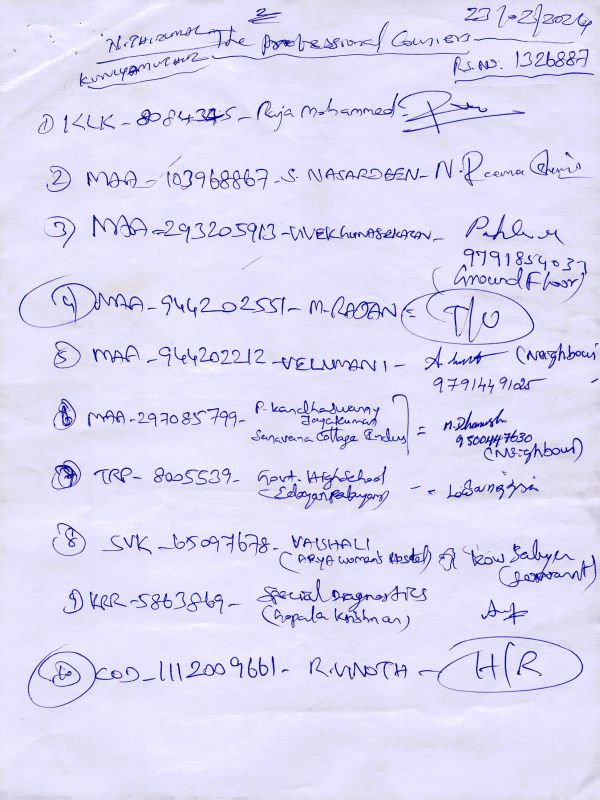 2
23/02/2024
N. THIRUMAL
The Professional Couriers
KUNIYAMUTHUR
Rs.No. 1326887
① KLK - 8084345 - Raja Mohammed =
② MAA - 103968867 - S. NASARDEEN - N.
③ MAA - 293205913 -
9791854037
(Ground Floor)
④ MAA - 944202551 - M. RAJAN = T/O
⑤ MAA - 944202212 - VELUMANI - (Neighbour)
97914491025
⑥ MAA - 297085799 - P. Kandhaswamy
Jayakumar
Saravana Cottage Indus = N. Dhanush
9500447630
(Neighbour)
⑦ TRP - 8005539 - Govt. High School
⑧ SVK - 65097678 - VAISHALI
(ARYA Women's Hostel)
(Servant)
9) KRR - 5863869 - Special Diagnostics
(Gopala Krishnan)
⑩ COD - 1112009661 - R. VINOTH - H/R